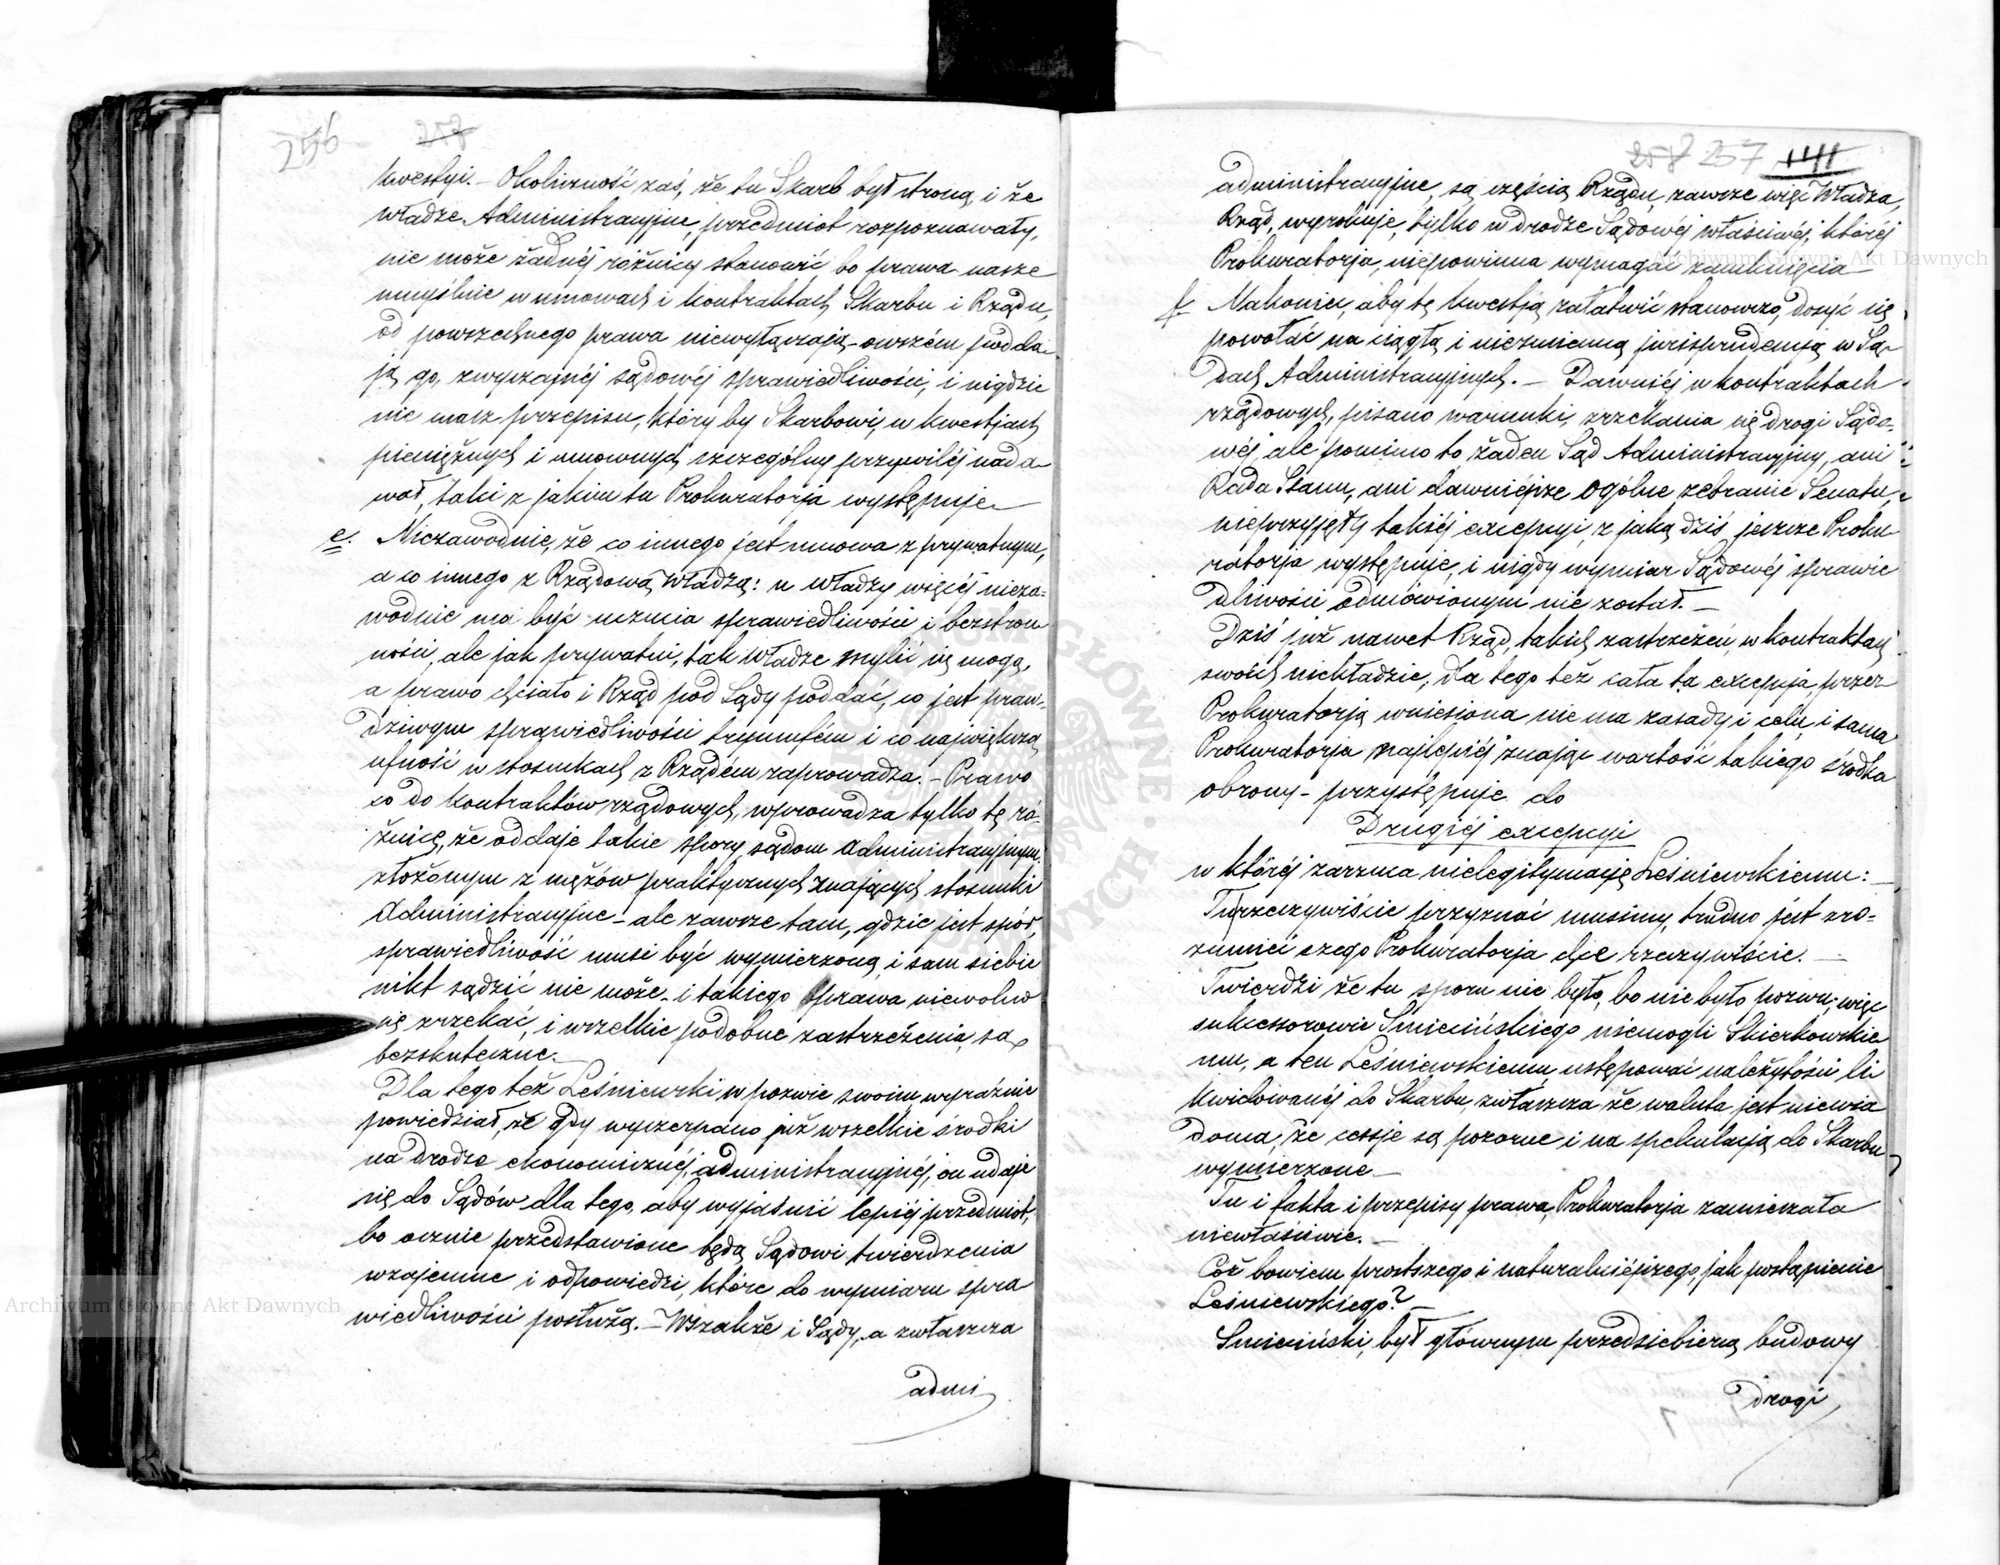 256 257
kwestyi. – Okoliczność zaś, że tu Skarb był stroną, i że
władze Administracyjne, przedmiot rozpoznawały,
nie może żadnéj różnicy stanowić bo prawa nasze
umyślnie w umowach i kontraktach Skarbu i Rządu,
od powszechnego prawa niewyłączają – owszém podda-
ją go, zwyczajnéj sądowéj sprawiedliwości, i nigdzie
nie masz przepisu, który by Skarbowi, w kwestjach
pieniężnych i umownych szczególny przywiléj nada
wał, taki z jakim tu Prokuratorja występuje –
e. Niezawodnie, że co innego jest umowa z prywatnym,
a co innego z Rządową Władzą: u Władzy więcéj nieza-
wodnie ma być uczucia sprawiedliwości i bezstron
ności, ale jak prywatni, tak Władze mylić się mogą,
a prawo chciało i Rząd pod Sądy poddać, co jest praw-
dziwym sprawiedliwości tryumfem i co największą
ufność w stosunkach z Rządém zaprowadza. – Prawo
co do kontraktów rządowych, wprowadza tylko tę ró-
żnicę, że oddaje takie spory sądom Administracyjnym
złożonym z mężów praktycznych znających stosunki
Administracyjne – ale zawsze tam, gdzie jest spór,
sprawiedliwość musi być wymierzoną i sam siebie
nikt sądzić nie może – i takiego prawa niewolno
się zrzekać, i wszelkie podobne zastrzeżenia są
bezskuteczne. –
Dla tego też Leśniewski w pozwie swoim wyraźnie
powiedział, że gdy wyczerpano już wszelkie środki
na drodze ekonomicznéj, administracyjnéj, on udaje
się do Sądów dla tego, aby wyjaśnić lepiéj przedmiot,
bo ocznie przedstawione będą Sądowi twierdzenia
wzajemne i odpowiedzi, które do wymiaru spra
wiedliwości posłużą. – Wszakże i Sądy, a zwłaszcza
admi
258 257
administracyjne, są częścią Rządu, zawsze więc Władza,
Rząd, wyrokuje, tylko w drodze Sądowéj właściwéj, któréj
Prokuratorja, niepowinna wymagać zamknięcia –
f Nakoniec, aby tę kwestją załatwić stanowczo, dosyć się
powołać na ciągłą i niezmienną jurisprudencją w Są-
dach Administracyjnych. – Dawniéj w kontraktach
rządowych, pisano warunki, zrzekania się drogi Sądo-
wéj, ale pomimo to, żaden Sąd Administracyjny, ani
Rada Stanu, ani dawniéjsze ogólne zebranie Senatu,
nieprzyjęły takiéj excepcyi, z jaką dziś jeszcze Proku
ratorja występuje, i nigdy wymiar Sądowéj sprawie
dliwości odmówionym nie został. –
Dziś już nawet Rząd, takich zastrzeżeń, w kontraktach
swoich niekładzie, dla tego też cała ta excepcja, przez
Prokuratorją wniesiona nie ma zasady i celu, i sama
Prokuratorja najlepiéj znając wartość takiego środka
obrony – przystępuje do
Drugiéj excepcyi
w któréj zarzuca nielegitymację Leśniewskiemu: –
Tu rzeczywiście przyznać musimy, trudno jest zro-
zumieć czego Prokuratorja chce rzeczywiście. –
Twierdzi że tu sporu nie było, bo nie było pozwu, więc
sukcessorowie Smicińskiego niemogli Skierkowskie
mu, a ten Leśniewskiemu ustępować należytości li
kwidowanéj do Skarbu, zwłaszcza że waluta jest niewia
doma, że cessje są pozorne i na spekulacją do Skarbu
wymierzone –
Tu i fakta i przepisy prawa, Prokuratorja zamieszała
niewłaściwie. –
Cóż bowiem prostszego i naturalniéjszego, jak postąpienie
Leśniewskiego? –
Smiciński, był głównym przedsiebiercą budowy
drogi